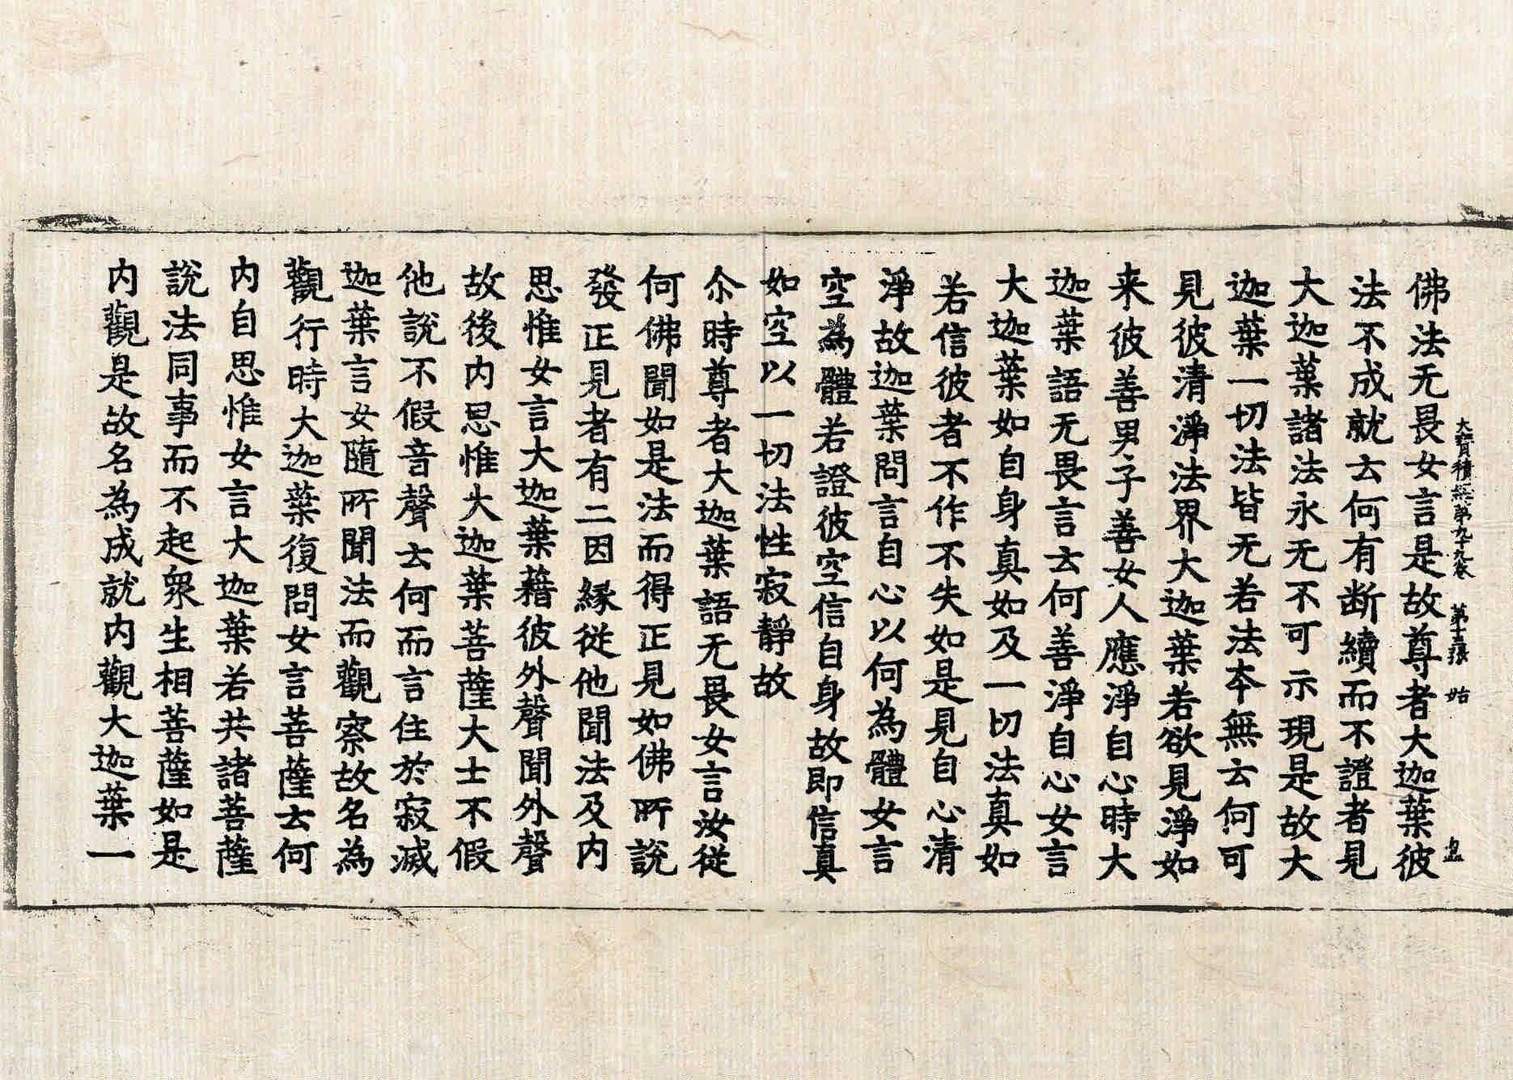 大寶積經第九十九卷 第十五張 始
佛法无畏女言是故尊者大迦葉彼
法不成就去何有断續而不證者見
大迦葉諸法永无不可示現是故大
迦葉一切法皆无若法夲無去何可
見彼清淨法界大迦葉若欲見淨如
来彼善男子善女人應淨自心時大
迦葉語无畏言去何善淨自心女言
大迦葉如自身真如及一切法真如
若信彼者不作不失如是見自心清
淨故迦葉問言自心以何為體女言
空為體若證彼空信自身故即信真
如空以一切法性寂靜故
尒時尊者大迦葉語无畏女言汝従
何佛聞如是法而得正見如佛所說
發正見者有二因緣従他聞法及内
思惟女言大迦葉藉彼外聲聞外聲
故後内思惟大迦葉菩薩大士不假
他說不假音聲去何而言住於寂滅
迦葉言女隨所聞法而觀察故名為
觀行時大迦葉復問女言菩薩去何
内自思惟女言大迦葉若共諸菩薩
說法同事而不起衆生相菩薩如是
内觀是故名為成就内觀大迦葉一